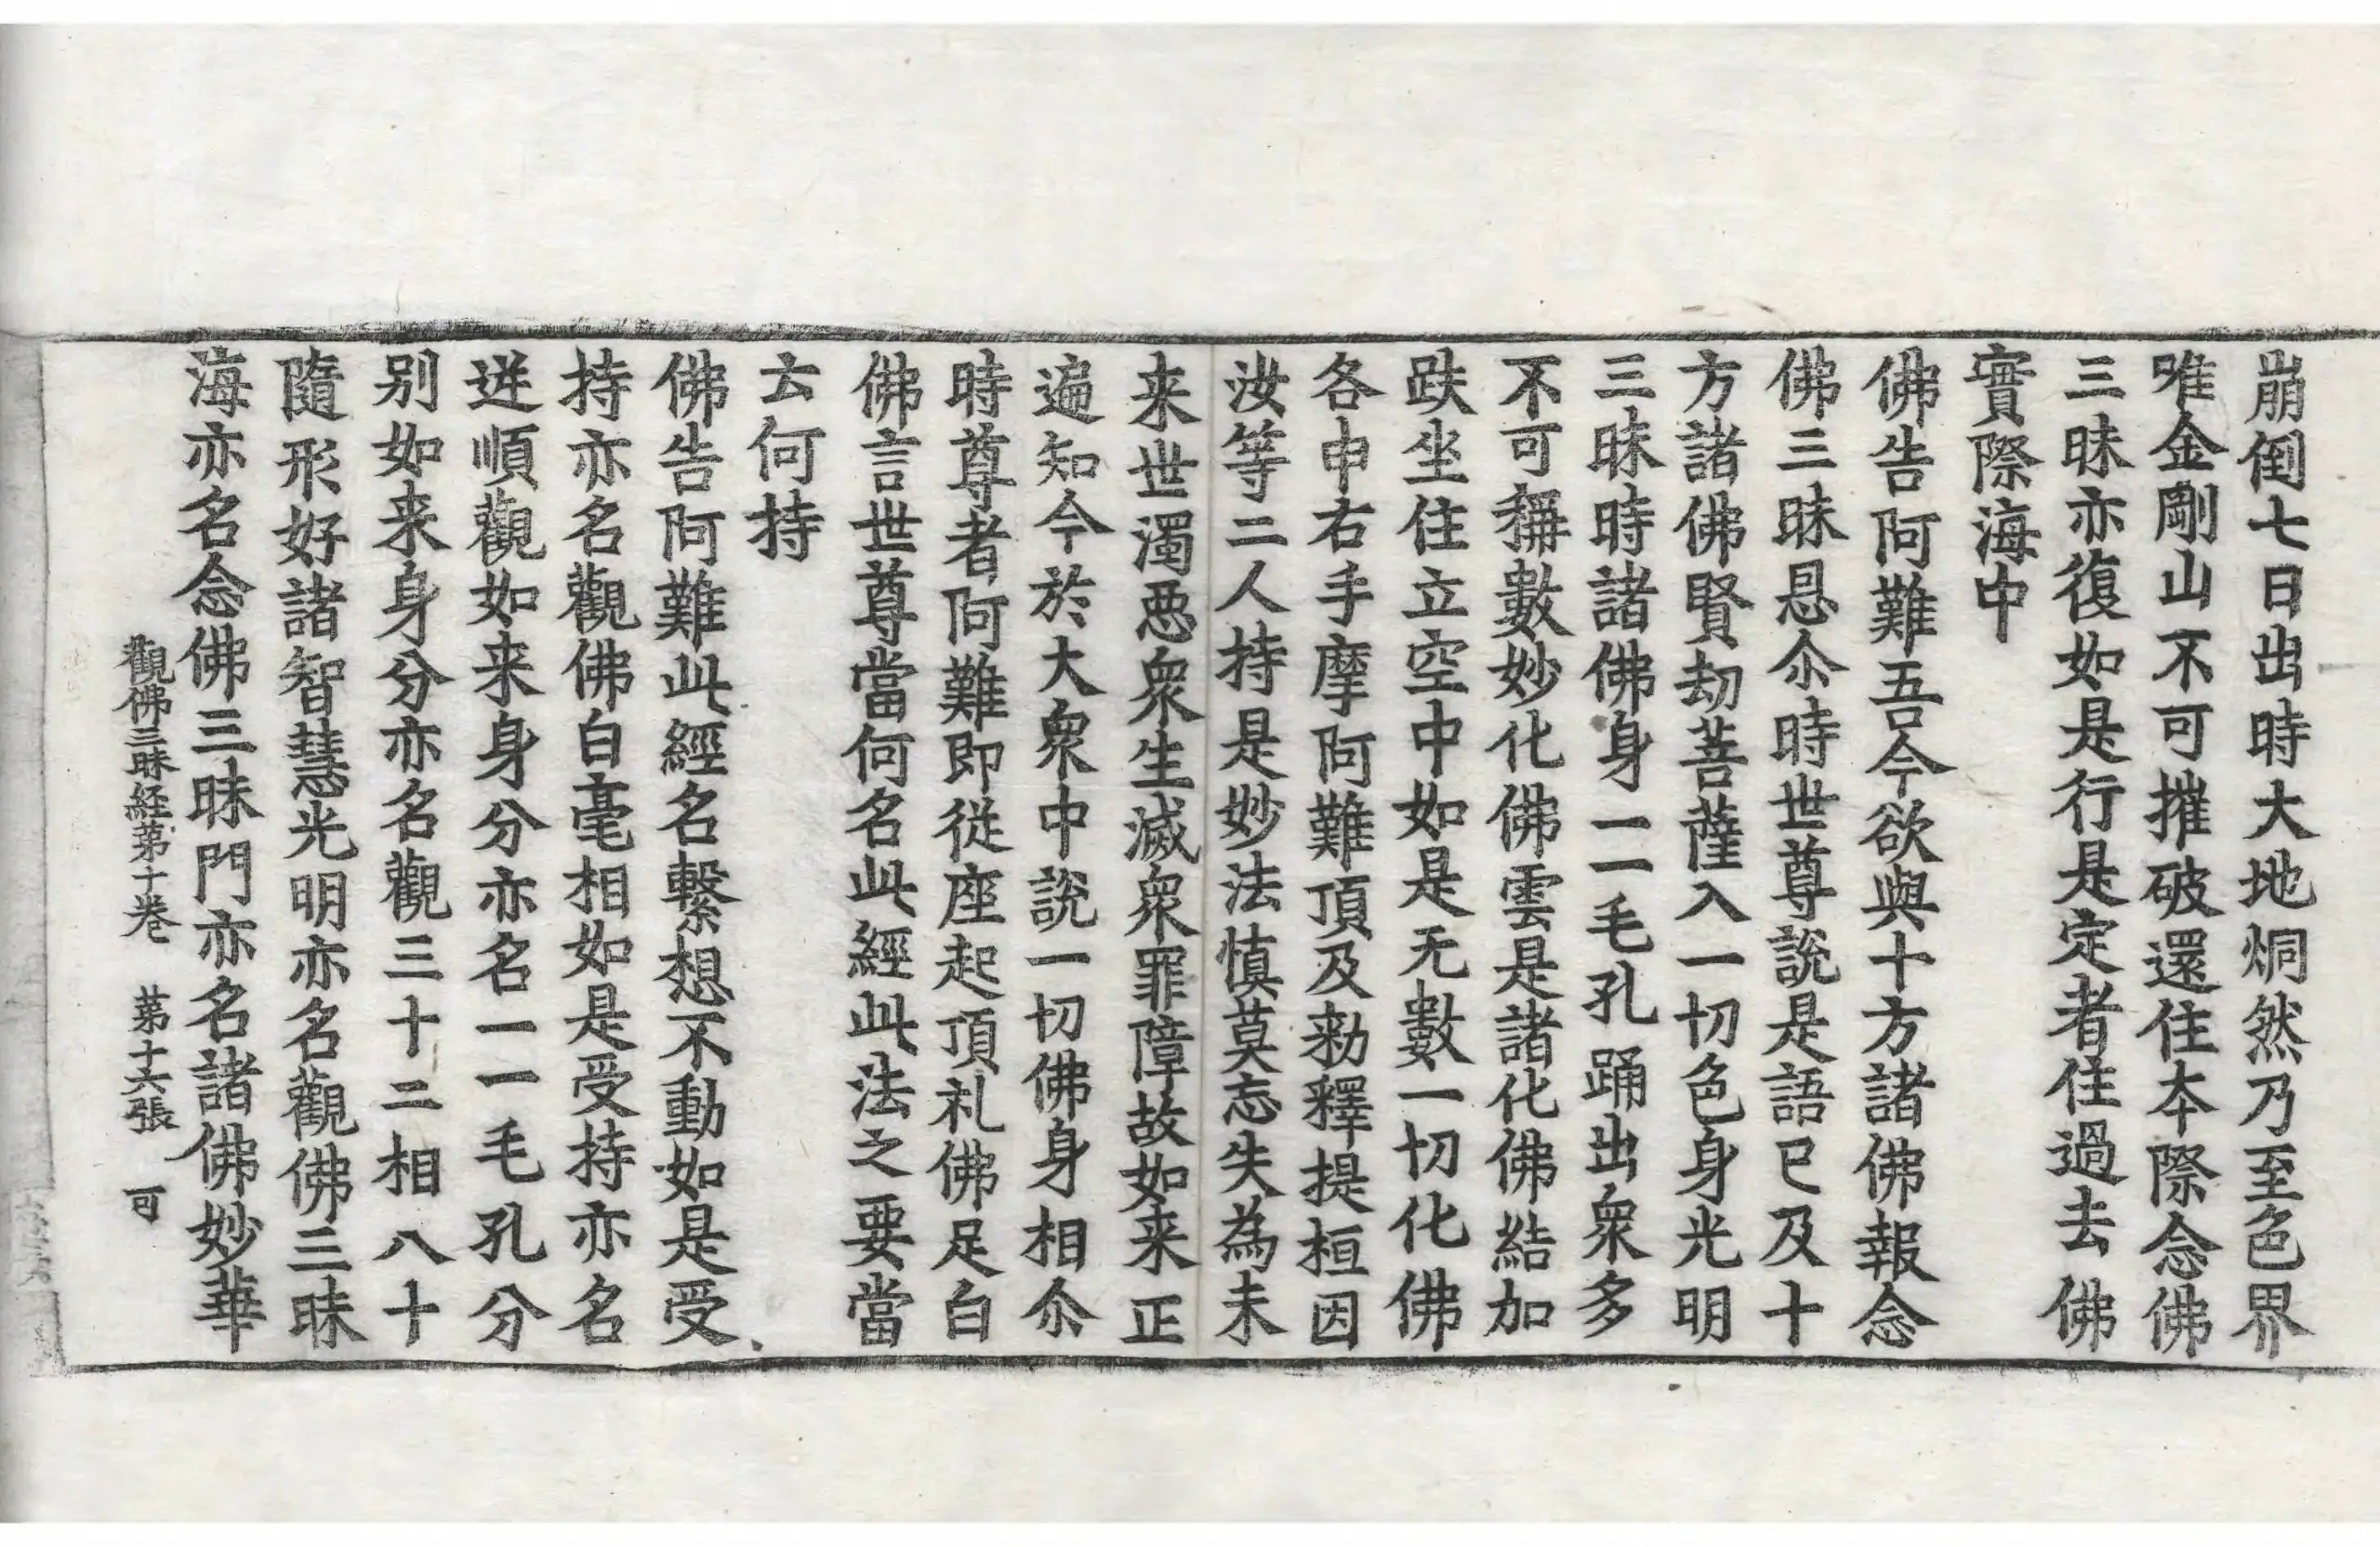 崩倒七日出時大地烔然乃至色界
唯金剛山不可摧破還住本際念佛
三昧亦復如是行是定者住過去佛
實際海中
佛告阿難吾今欲與十方諸佛報念
佛三昧恩尒時世尊說是語已及十
方諸佛賢劫菩薩入一切色身光明
三昧時諸佛身一一毛孔踊出衆多
不可稱數妙化佛雲是諸化佛結加
趺坐住立空中如是无數一切化佛
各申右手摩阿難頂及勑釋提桓因
汝等二人持是妙法慎莫忘失為未
来世濁惡衆生滅衆罪障故如来正
遍知今於大衆中說一切佛身相尒
時尊者阿難即從座起頂礼佛足白
佛言世尊當何名此經此法之要當
云何持
佛告阿難此經名繫想不動如是受
持亦名觀佛白毫相如是受持亦名
逆順觀如来身分亦名一一毛孔分
别如来身分亦名觀三十二相八十
隨形好諸智慧光明亦名觀佛三昧
海亦名念佛三昧門亦名諸佛妙華
觀佛三昧経苐十卷 苐十六張 可